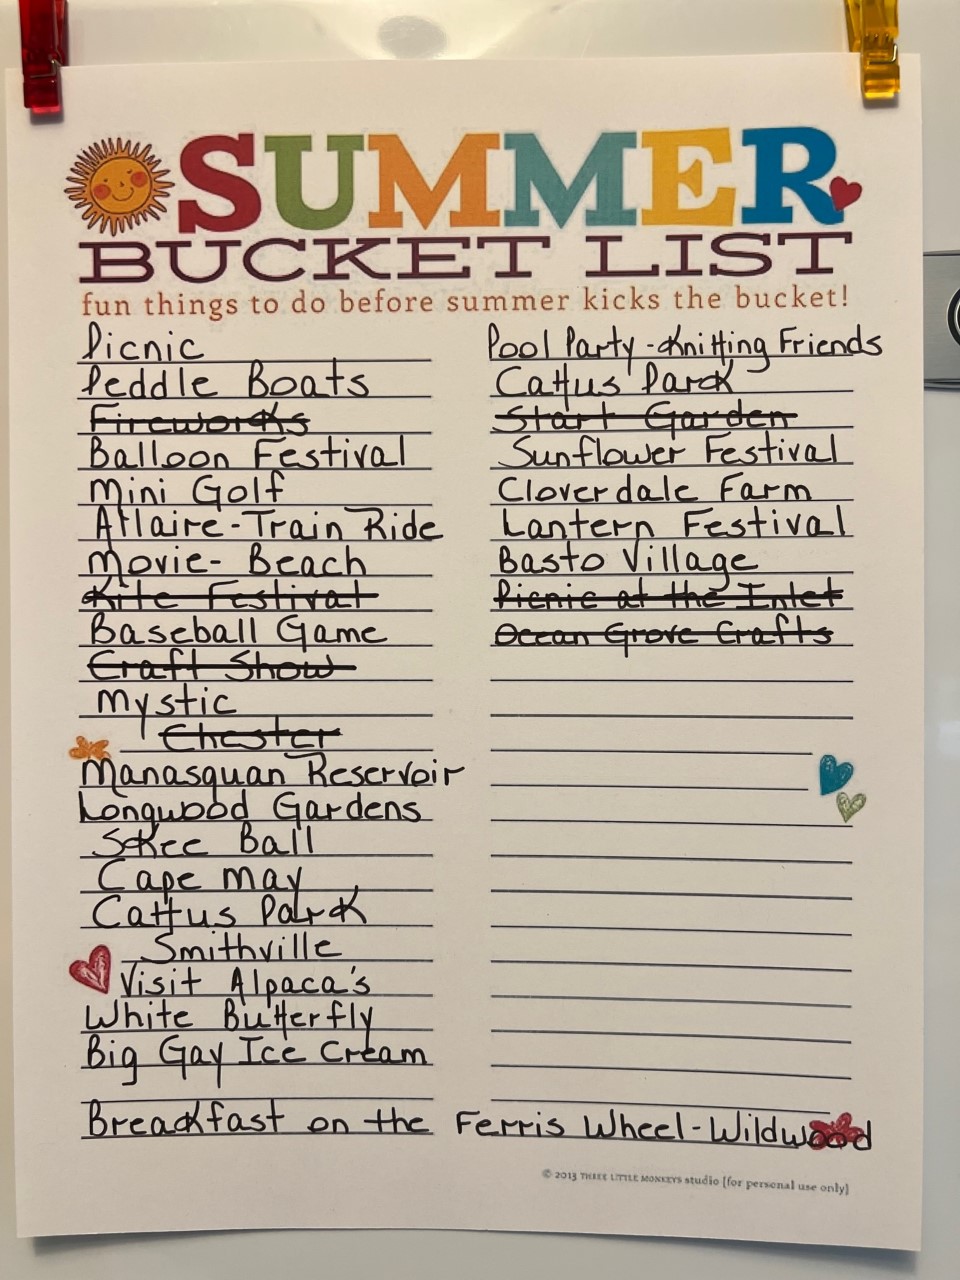 SUMMER
BUCKET LIST
fun things to do before summer kicks the bucket!
Picnic
Peddle Boats
Fireworks
Balloon Festival
Mini Golf
Allaire-Train Ride
Movie- Beach
Kite Festival
Baseball Game
Craft Show
Mystic
Chester
Manasquan Reservoir
Longwood Gardens
Skee Ball
Cape May
Cattus Park
Smithville
Visit Alpaca's
White Butterfly
Big Gay Ice Cream
Pool Party-Knitting Friends
Cattus Park
Start Garden
Sunflower Festival
Cloverdale Farm
Lantern Festival
Basto Village
Picnic at the Inlet
Ocean Grove Crafts
Breakfast on the Ferris Wheel-Wildwood
© 2013 THREE LITTLE MONKEYS studio {for personal use only}